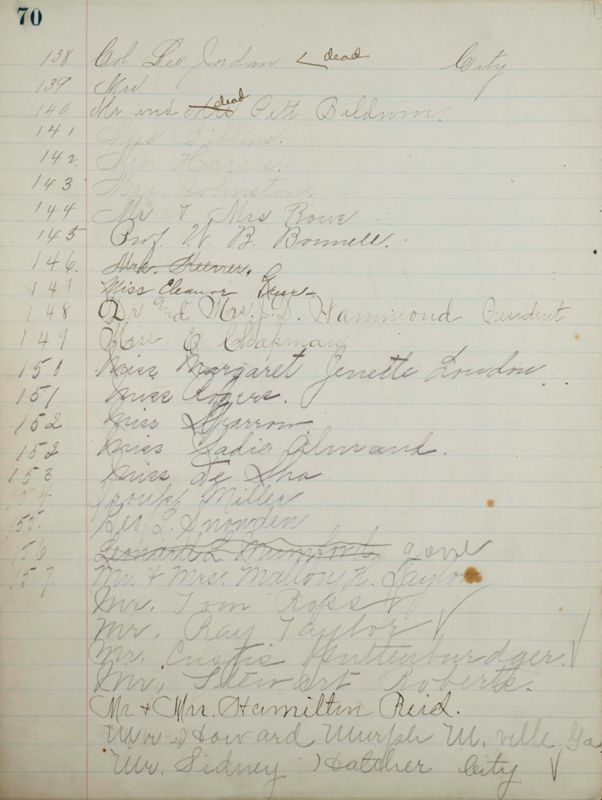 70
138 Col. Lee Jordan dead City
139 Mrs.
140 Mr. and Mrs dead Pitt Baldwin.
141 Miss Gibbins.
142. Mrs. Harris.
143 Mrs. Johnston
144 Mr & Mrs Rowe
145 Prof. W. B. Bonnell.
146.
147 Miss Eleanor
148 Dr and Mrs. J. D. Hammond President
149 E Chapman
150 Miss Margaret Jenette London.
151 Miss Rogers.
152 Miss Sparrow
152 Miss Sadie Almand.
153 Miss De Sha
154 Joseph Miller
155. Geo. L. Snowden
156 Leonard L Mumford gone
157. Mr. & Mrs. Mallory H. Taylor
Mr. Tom Ross
Mr. Ray Taylor
Mr. Custis
Mr. Stewart Roberts.
Mr. & Mrs. Hamilton Reid.
Mr Howard M. ville, Ga.
Mr. Sidney Hatcher City